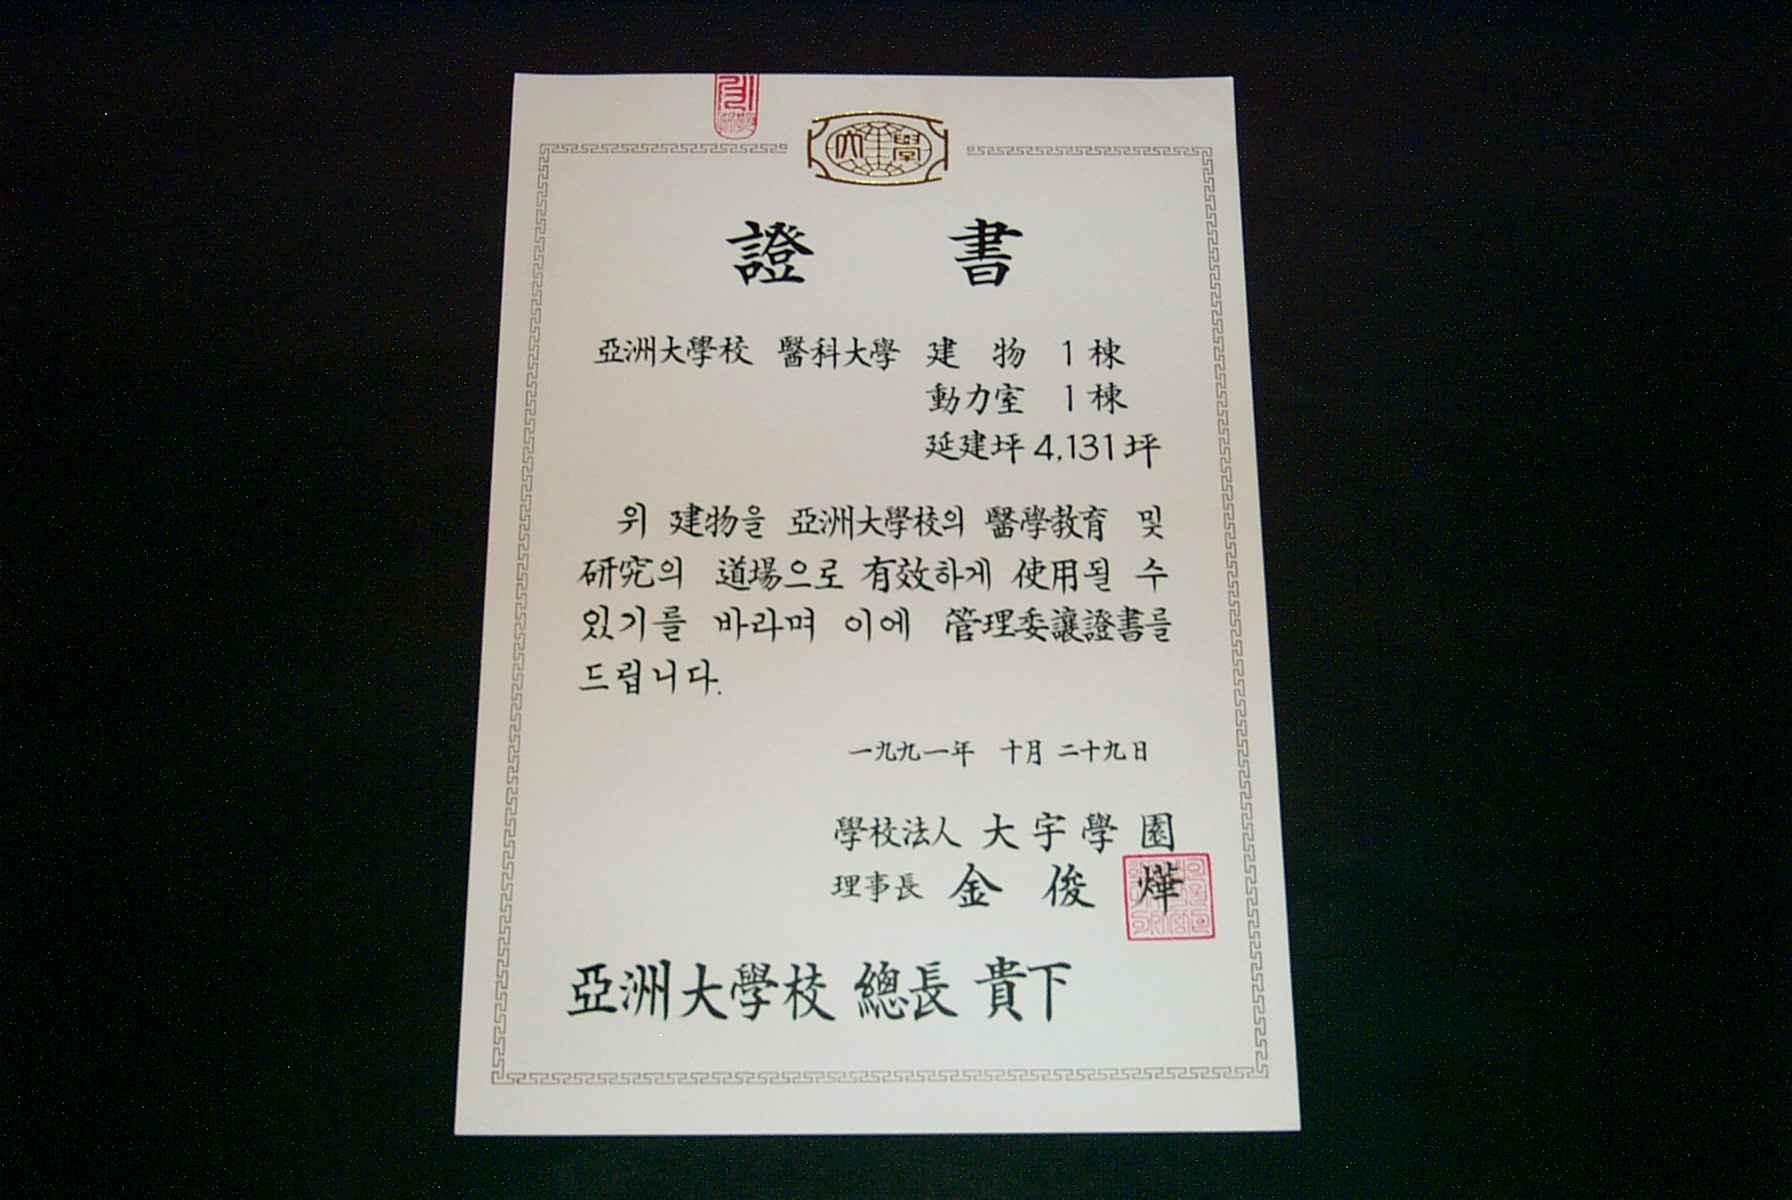 大學
證 書
亞洲大學校 醫科大學 建 物 1棟
動力室 1棟
延建坪 4,131坪
위 建物을 亞洲大學校의 醫學教育 및
研究의 道場으로 有效하게 使用될 수
있기를 바라며 이에 管理委讓證書를
드립니다.
一九九一年 十月 二十九日
學校法人 大宇學園
理事長 金 俊 燁
亞洲大學校 總長 貴下